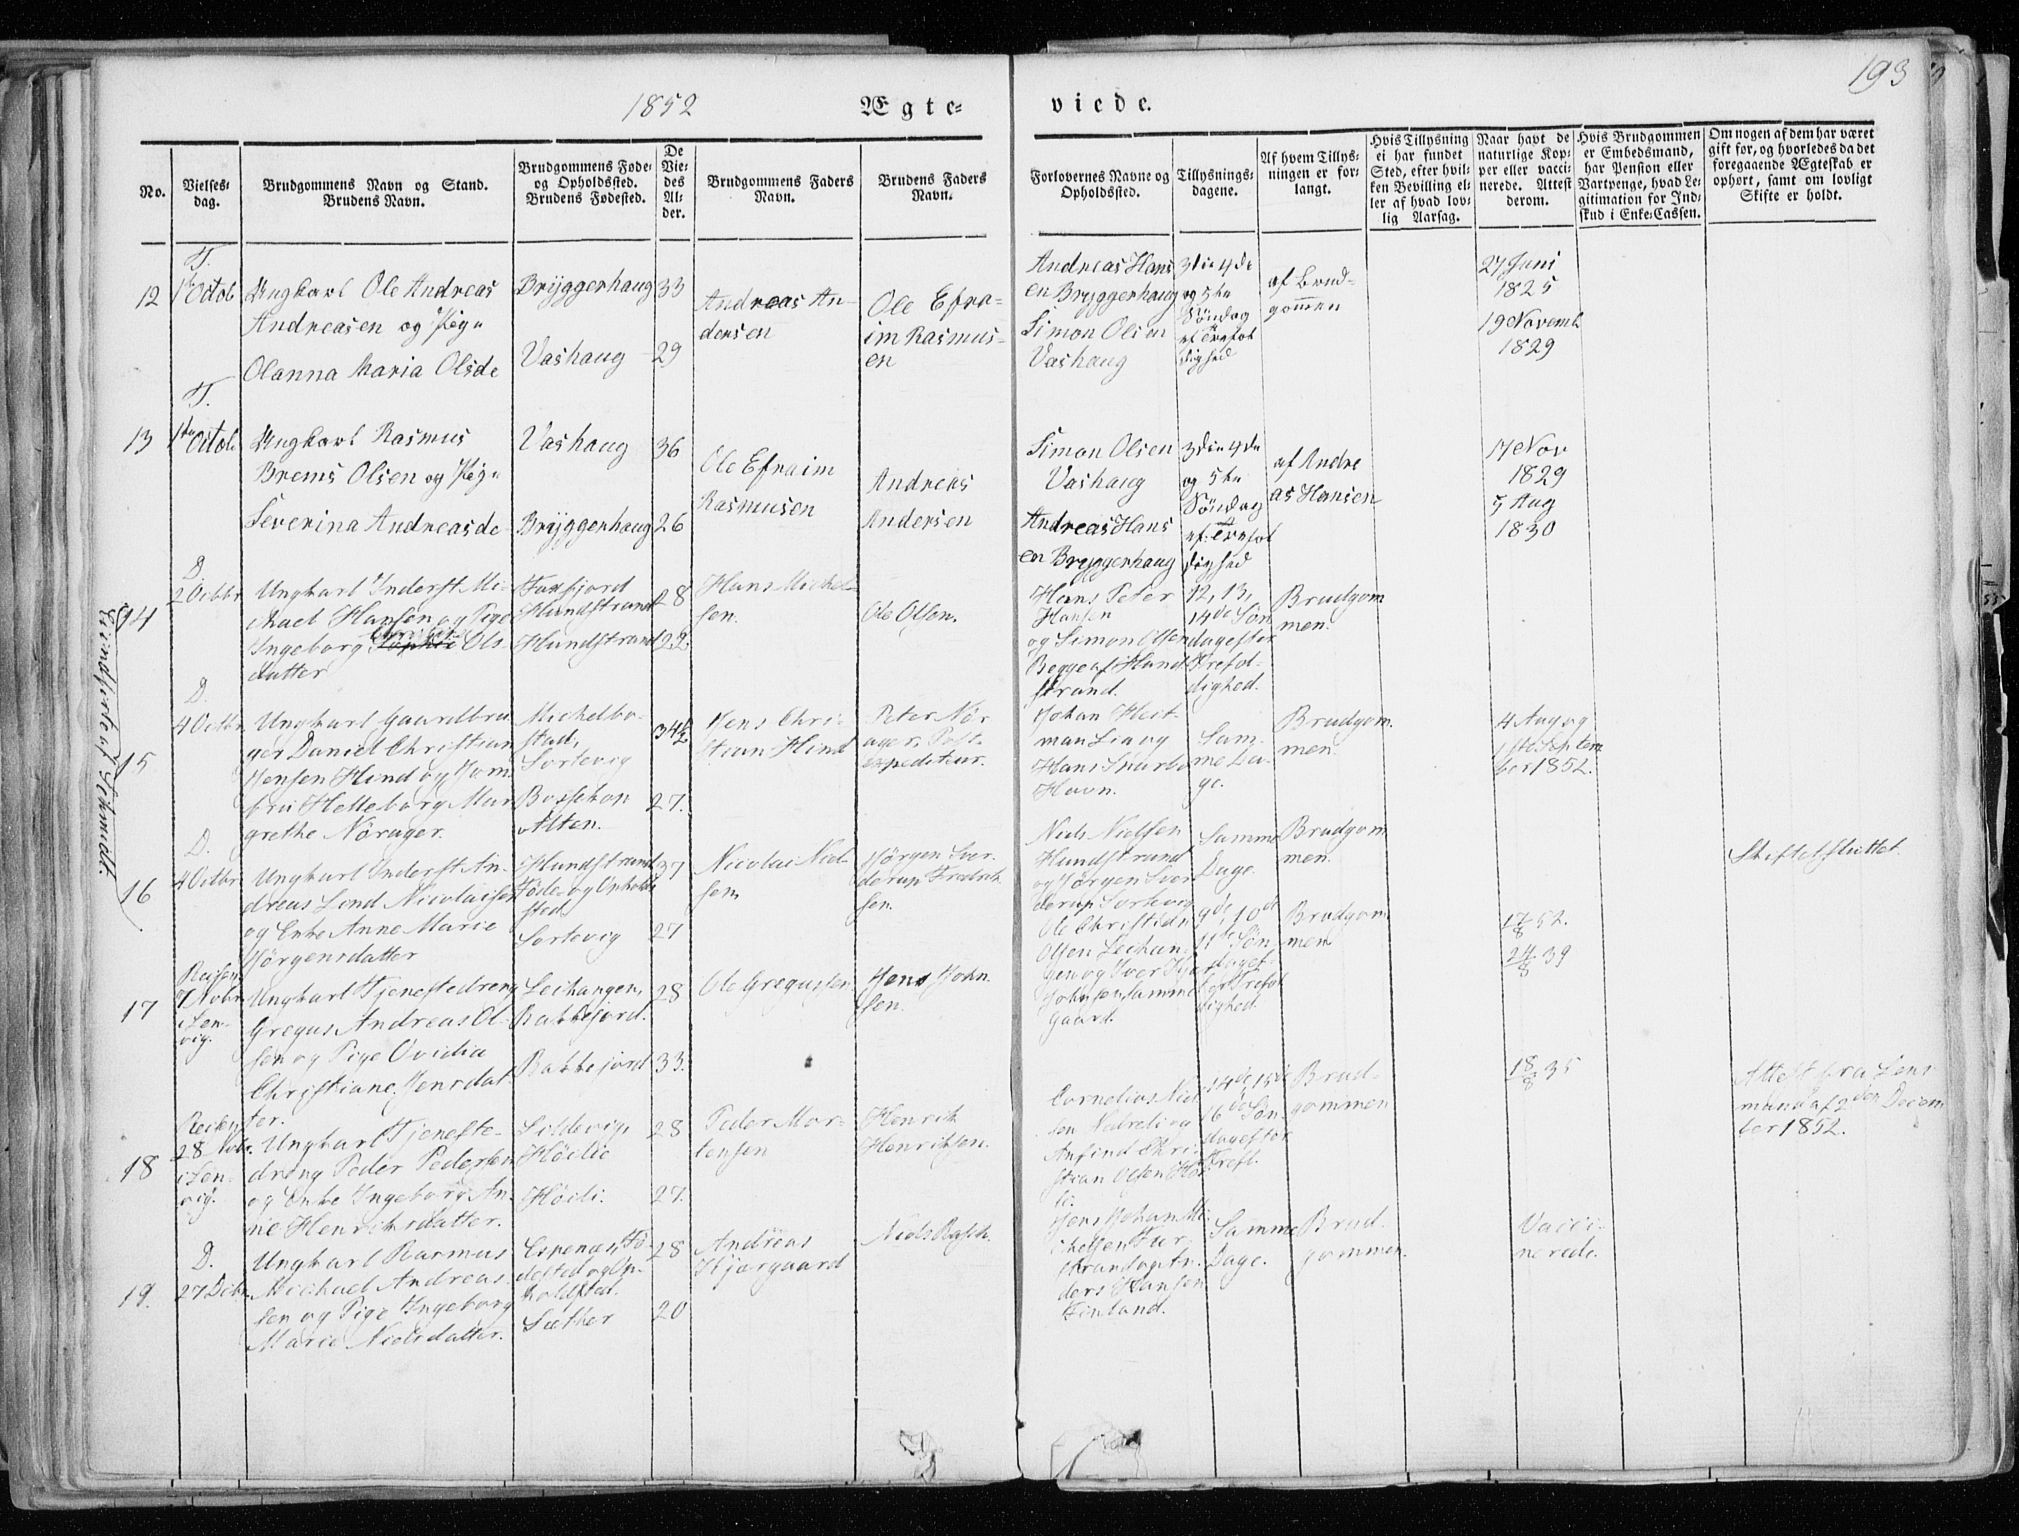 193
1852
Ægte-
viede.
No.
Vielses-
dag.
Brudgommens Navn og Stand.
Brudens Navn.
Brudgommens Føde-
og Opholdssted.
Brudens Fødested.
De
Vie-
des
Al-
der.
Brudgommens Faders
Navn.
Brudens Faders
Navn.
Forlovernes Navne og
Opholdssted.
Tillysnings-
dagene.
Af hvem Tillys-
ningen er for-
langt.
Hvis Tillysning
ei har fundet
Sted, efter hvil-
ken Bevilling el-
ler af hvad lov-
lig Aarsag.
Naar havt de
naturlige Kop-
per eller vacci-
nerede. Attest
derom.
Hvis Brudgommen
er Embedsmand,
har Pension eller
Vartpenge, hvad Le-
gitimation for Ind-
skud i Enke-Cassen.
Om nogen af dem har været
gift før, og hvorledes da det
foregaaende Ægteskab er
ophørt, samt om lovligt
Skifte er holdt.
T.
12
1ste Octob
Ungkarl Ole Andreas
Andreasen og Pige
Olanna Maria Olsde
Bryggerhaug
Vashaug
33
29
Andreas An-
dersen
Ole Efra-
im Rasmus-
en
Andreas Hans
en Bryggerhaug
Simon Olsen
Vashaug
3die 4de
og 5te
Søndag
ef. Trefol
dighed
af Brud-
gommen
27 Juni
1825
19 Novemb
1829
T.
13
1ste Octob
Ungkarl Rasmus
Brems Olsen og Pige
Severina Andreasde
Vashaug
Bryggerhaug
36
26
Ole Efraim
Rasmusen
Andreas
Andersen
Simon Olsen
Vashaug
Andreas Hans
en Bryggerhaug
3die 4de
og 5te
Søndag
ef. Trefol
dighed
af Andre
as Hansen
17 Nov
1829
5 Aug
1830
D
14
2 Octbr
Ungkarl Inderst Mi-
chael Hansen og Pige
Ingeborg Sophie Ols
datter
Faxfjord
Hundstrand
Hundstrand
28
22
Hans Michel-
sen.
Ole Olsen.
Hans Peter
Hansen
og Simon Olsen
Begge af Hund
strand.
12, 13,
14de Søn
dag efter
Trefol-
dighed.
Brudgom
men.
D.
15
4 Octbr
Ungkarl Gaardbru
ger Daniel Christian
Jensen Hind og Jom
fru Helleborg Mar
grethe Nørager.
Michelbo-
stad,
Sortevig
Bossekop
Alten.
34½
27.
Jens Chri-
stian Hind
Peter Nør
ager, Post-
expeditør.
Johan Heit-
man Lia og
Hans Snarbo
Havn.
Sam-
me Da-
ge.
Brudgom
men.
4 Aug og
1ste Septem
ber 1852.
D.
16
4 Octbr
Ungkarl Inderst An-
dreas Lind Nicolaisen
og Enke Anne Marie
Jørgensdatter
Hundstrand
Føde- og Opholds
sted
Sortevig
37
27
Nicolai Niel-
sen
Jørgen Sver
derup Fredrik
sen.
Niels Nielsen
Hundstrand
og Jørgen Sver
derup Sortevig
Samme
Dage.
Brudgom
men.
Skiftet sluttet.
17
7 Nobr
i Len-
vig.
Ungkarl Tjenestedreng
Gregus Andreas Ol-
sen og Pige Ovidia
Christiane Jensdat-
ter.
Leihangen,
Rakkfjord.
Rakkfjord
28
33.
Ole Gregussen
Jens John
sen.
Ole Christian
Olsen Leihan-
gen og Iver
Johnsen, samme
Gaard.
9de, 10de
11te Søn
dag ef-
ter Trefol
dighed.
Brudgom
men
17/8 52.
24/8 39
18
28 Nobr.
i Len-
vig.
Ungkarl Tjeneste-
dreng Peder Pedersen
og Enke Ingeborg An-
ne Henriksdatter.
Sildevig,
Høilie
Høili.
28
27.
Peder Mor-
tensen
Henrik
Henriksen.
Cornelius Niel
sen og
Anfind Chri-
stian Olsen Høi
li.
14de, 15de
16de Søn
dag efter
Trefl.
Brud-
gommen
18/8 35
Attest fra Lens
mand af 2den Decem
ber 1852.
D.
19.
27 Decbr
Ungkarl Rasmus
Michael Andreas-
sen og Pige Ingeborg
Marie Nielsdatter.
Espenæs, Fø
dested og Op-
holdsted.
Sæther
28
20
Andreas
Hjorgaard
Niels Rasch.
Jens Johan Mi-
chelsen Fur-
strand og An-
ders Hansen
Finland.
Samme
Dage.
Brud-
gommen.
Vacci-
nerede.